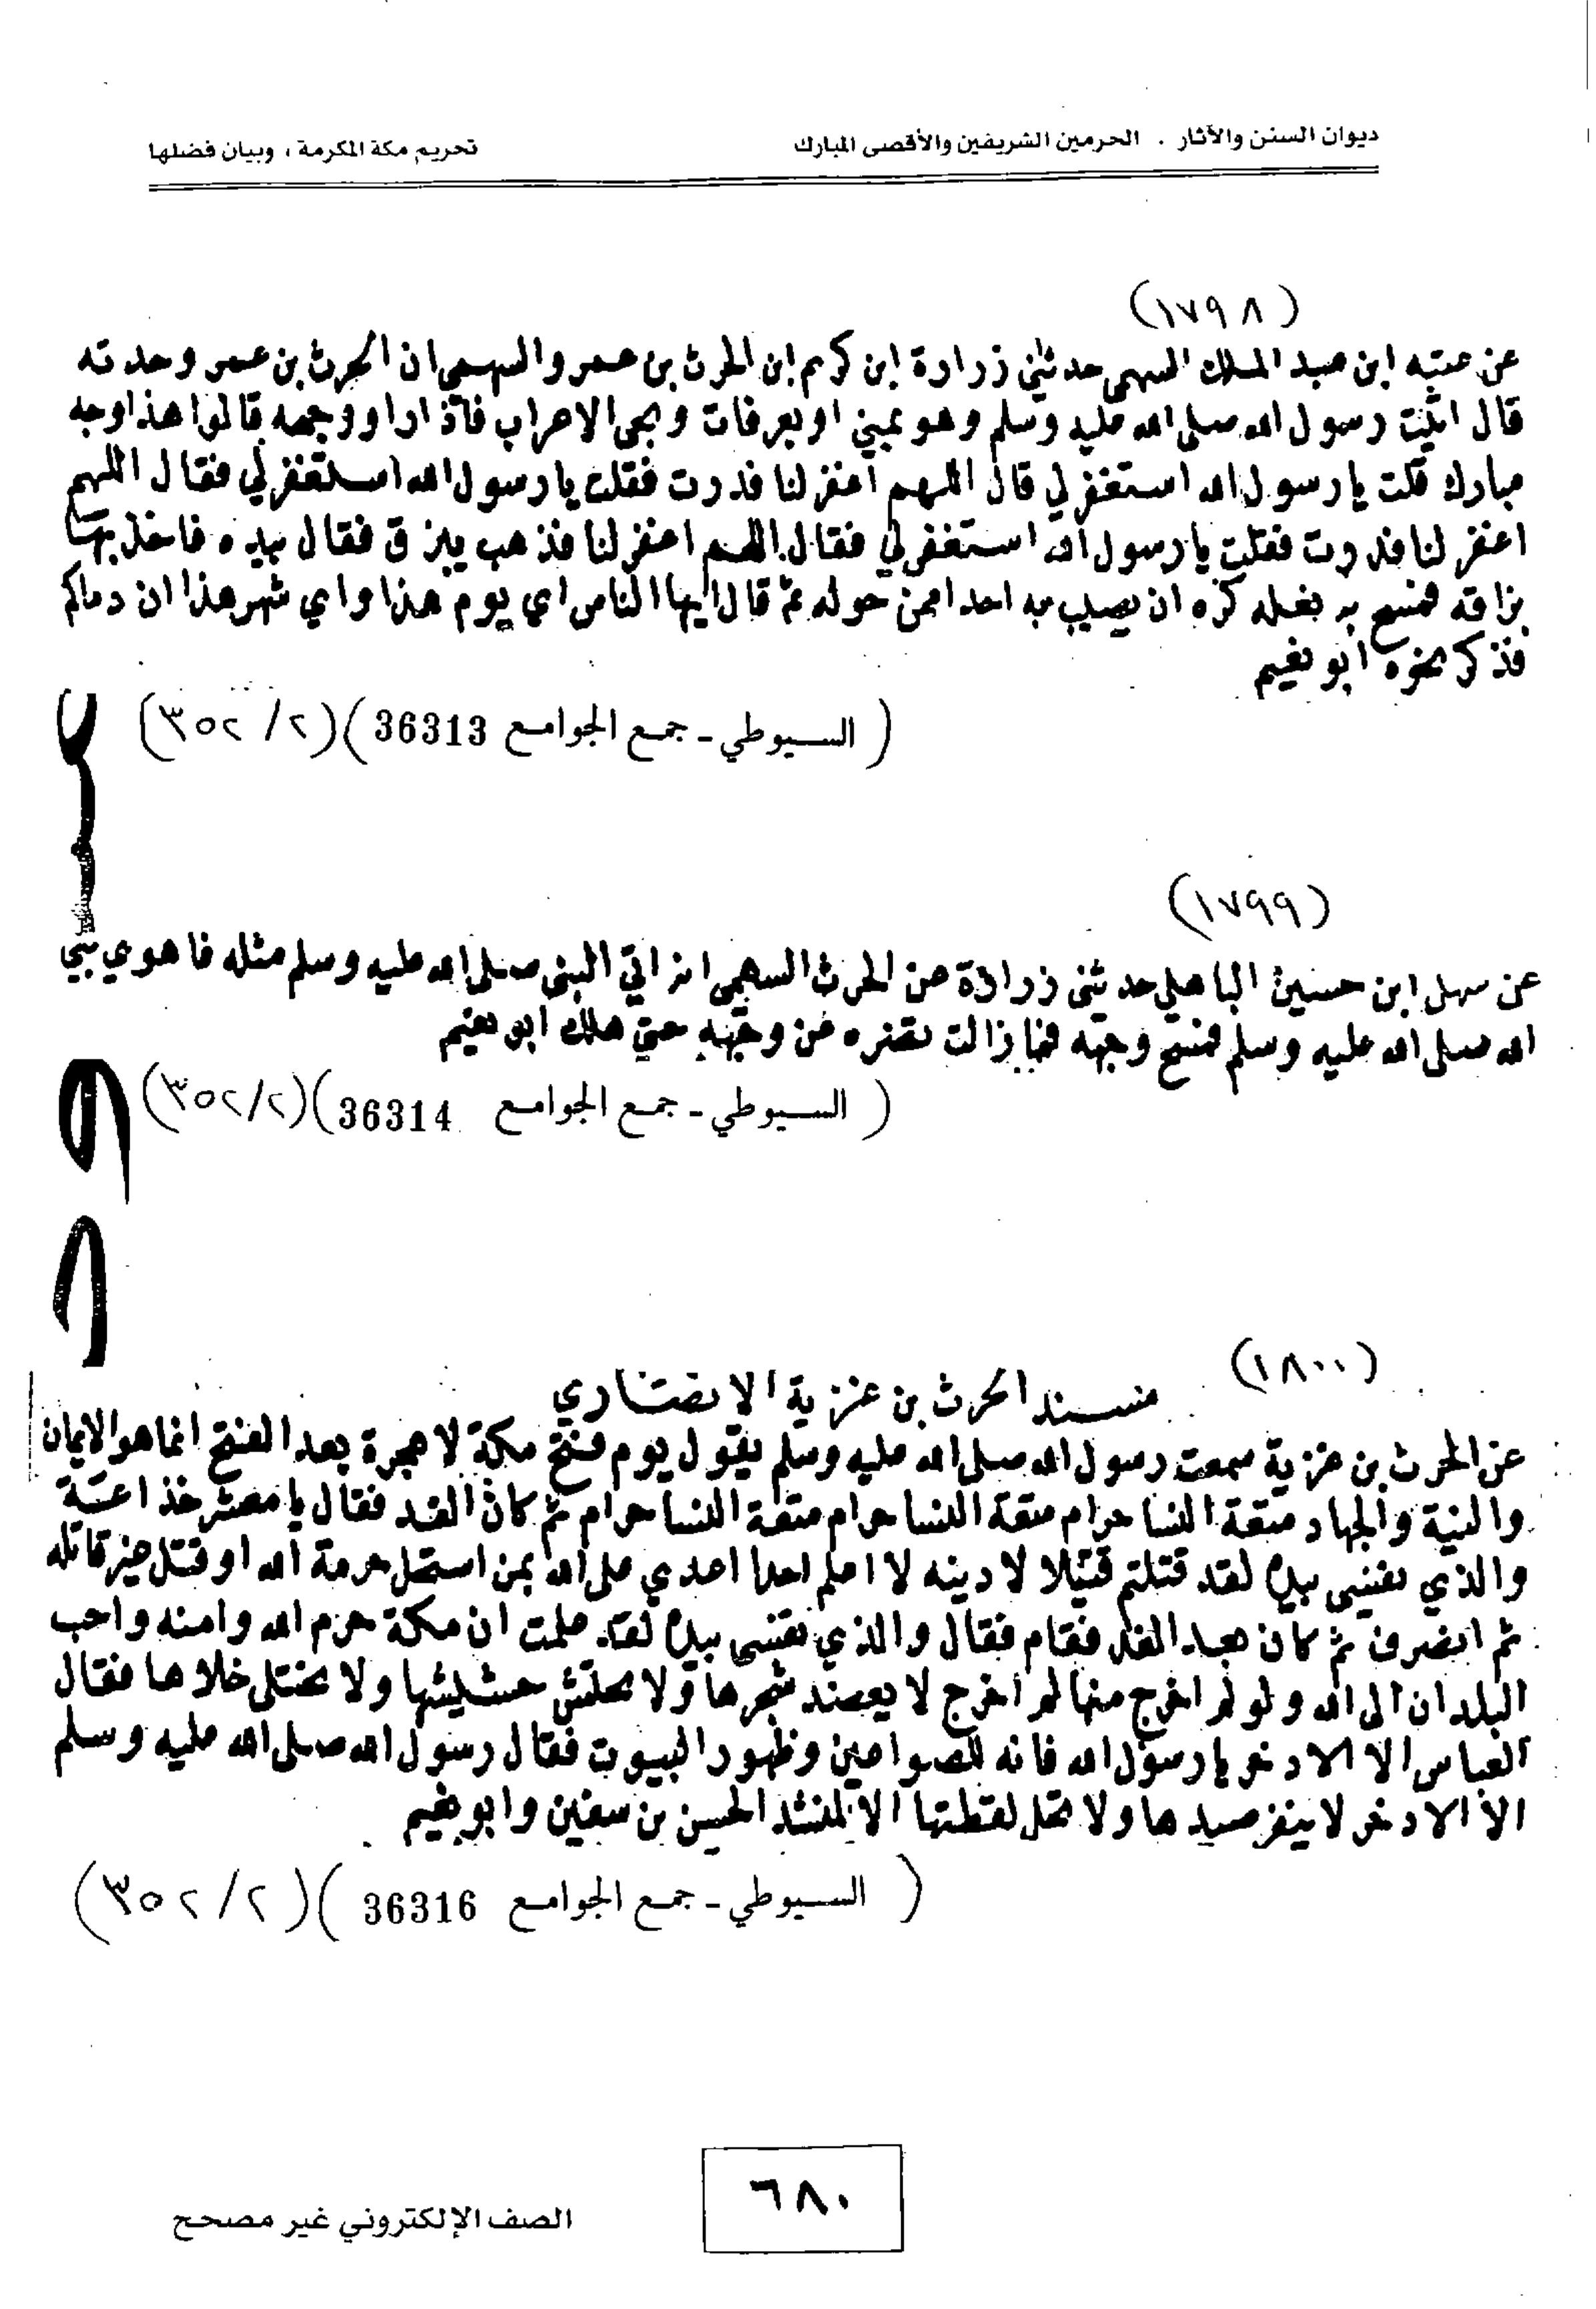 ديوان السنن والآثار . الحرمين الشريفين والأقصى المبارك
تحريم مكة المكرمة ، وبيان فضلها
(١٧٩٨)
عن عتبه ابن عبد الملك السهمي حدثني زرارة ابن كريم ابن الحرث بن عمر والسهمي ان الحرث بن عمر وحدثه
قال اتيت رسول الله صلى الله عليه وسلم وهو بمني او بعرفات ويجى الاعراب فاذا راوا وجهه قالوا هذا وجه
مبارك قلت يا رسول الله استغفر لي قال اللهم اغفر لنا فدرت فقلت يا رسول الله استغفر لي فقال اللهم
اغفر لنا فدرت فقلت يا رسول الله استغفر لي فقال اللهم اغفر لنا فذهب يبزق فقال بيده فاخذ بها
بزاقه فمسح به نعله كره ان يصيب به احدا ممن حوله ثم قال ايها الناس اي يوم هذا واي شهر هذا ان دماكم
فذكر نحوه ابو نعيم
( السيوطي - جمع الجوامع 36313 )(٢/ ٣٥٢)
(١٧٩٩)
عن سهل ابن حسين الباهلي حدثني زرارة عن الحرث السهمي انه اتي النبي صلى الله عليه وسلم مثله فاهوي نبي
الله صلى الله عليه وسلم فمسح وجهه فما زالت نضره من وجهه حتي هلك ابو نعيم
( السيوطي - جمع الجوامع 36314 )(٢/ ٣٥٢)
(١٨٠٠)
مسند الحرث بن غزية الانصاري
عن الحرث بن غزية سمعت رسول الله صلى الله عليه وسلم يقول يوم فتح مكة لا هجرة بعد الفتح انما هو الايمان
والنية والجهاد متعة النسا حرام متعة النسا حرام متعة النسا حرام ثم كان الغد فقال يا معشر خذاعة
والذي نفسي بيده لقد قتلتم قتيلا لادينه لا اعلم احدا اعدي على الله بمن استحل حرمة الله او قتل غير قاتله
ثم انصرف ثم كان بعد الغد فقام فقال والذي نفسي بيده لقد علمت ان مكة حرم الله وامنه واحب
البلدان الى الله ولو لم اخرج منها لم اخرج لا يعصند شجرها ولا يحتش حشيشها ولا يختلى خلاها فقال
العباس الا الادخر يا رسول الله فانه للصواغين وظهور البيوت فقال رسول الله صلى الله عليه وسلم
الا الادخر لا ينفر صيدها ولا تحل لقطتها الا لمنشد الحسن بن سفين وابو نعيم
( السيوطي - جمع الجوامع 36316 )(٢/ ٣٥٢)
٦٨٠
الصف الإلكتروني غير مصحح